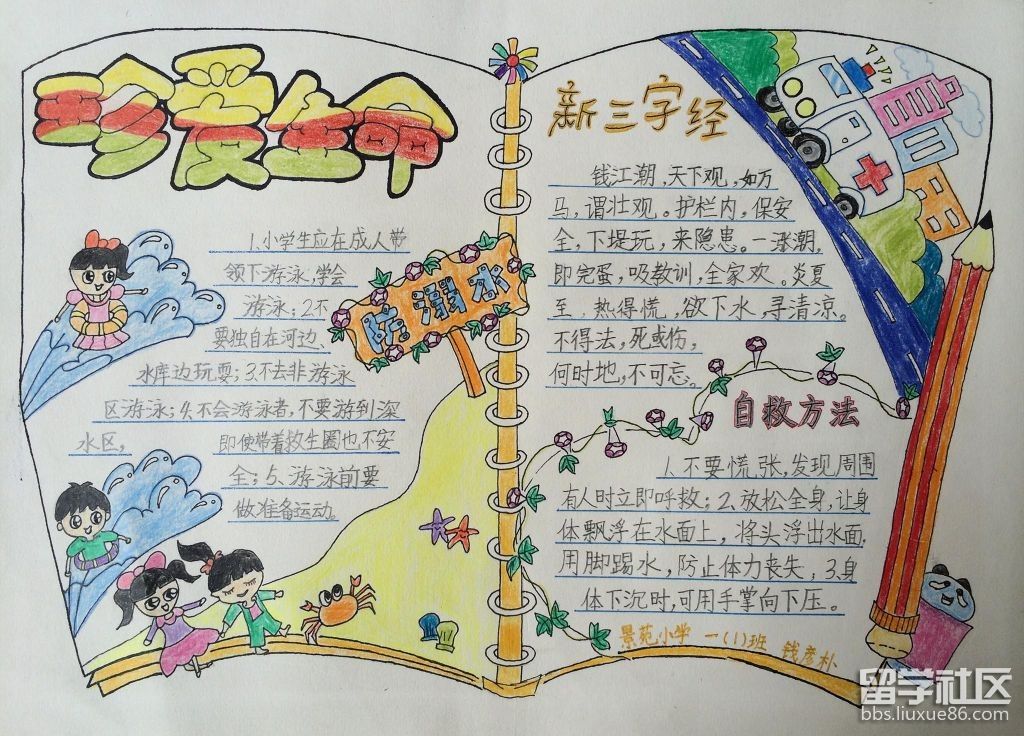 珍爱生命
1.小学生应在成人带
领下游泳,学会
游泳;2.不
要独自在河边、
水库边玩耍;3.不去非游泳
区游泳;4.不会游泳者,不要游到深
水区,即使带着救生圈也不安
全;5、游泳前要
做准备运动。
防溺水
新三字经
钱江潮,天下观,如万
马,谓壮观。护栏内,保安
全,下堤玩,来隐患。一涨潮,
即完蛋,吸教训,全家欢。炎夏
至,热得慌,欲下水,寻清凉。
不得法,死或伤,
何时地,不可忘。
自救方法
1.不要慌张,发现周围
有人时立即呼救;2.放松全身,让身
体飘浮在水面上,将头浮出水面,
用脚踢水,防止体力丧失,3.身
体下沉时,可用手掌向下压。
景苑小学 一(1)班 钱彦朴
留学社区
bbs.liuxue86.com